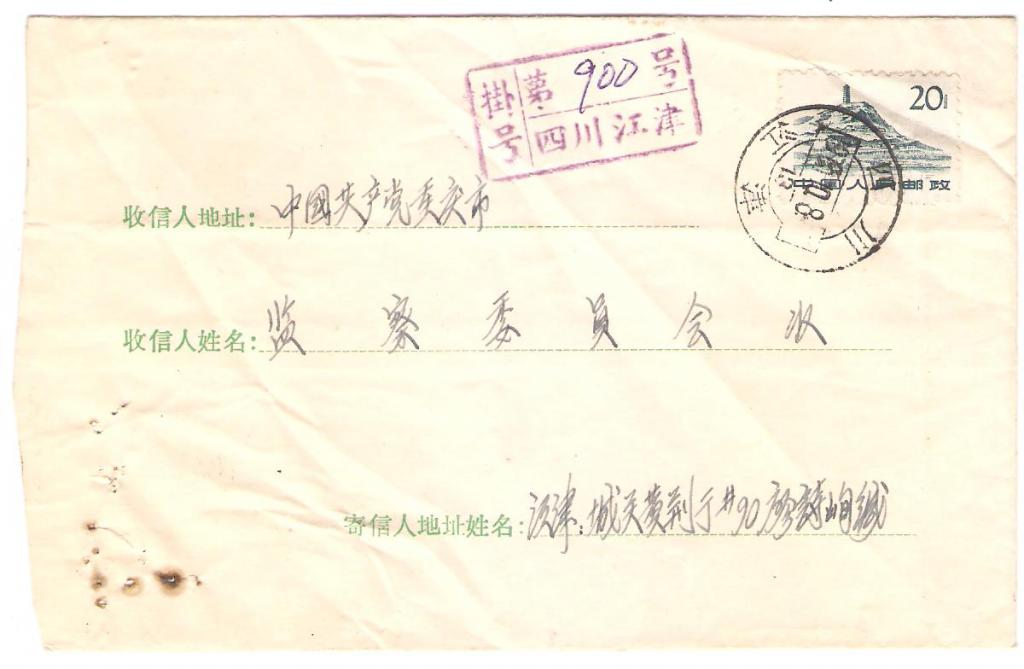 掛号 第900号
四川江津
20
中国人民邮政
四川 江津
收信人地址：中國共产党重庆市
收信人姓名：监察委員会收
寄信人地址姓名：江津.城关黄荆丁#90廖詩岫缄